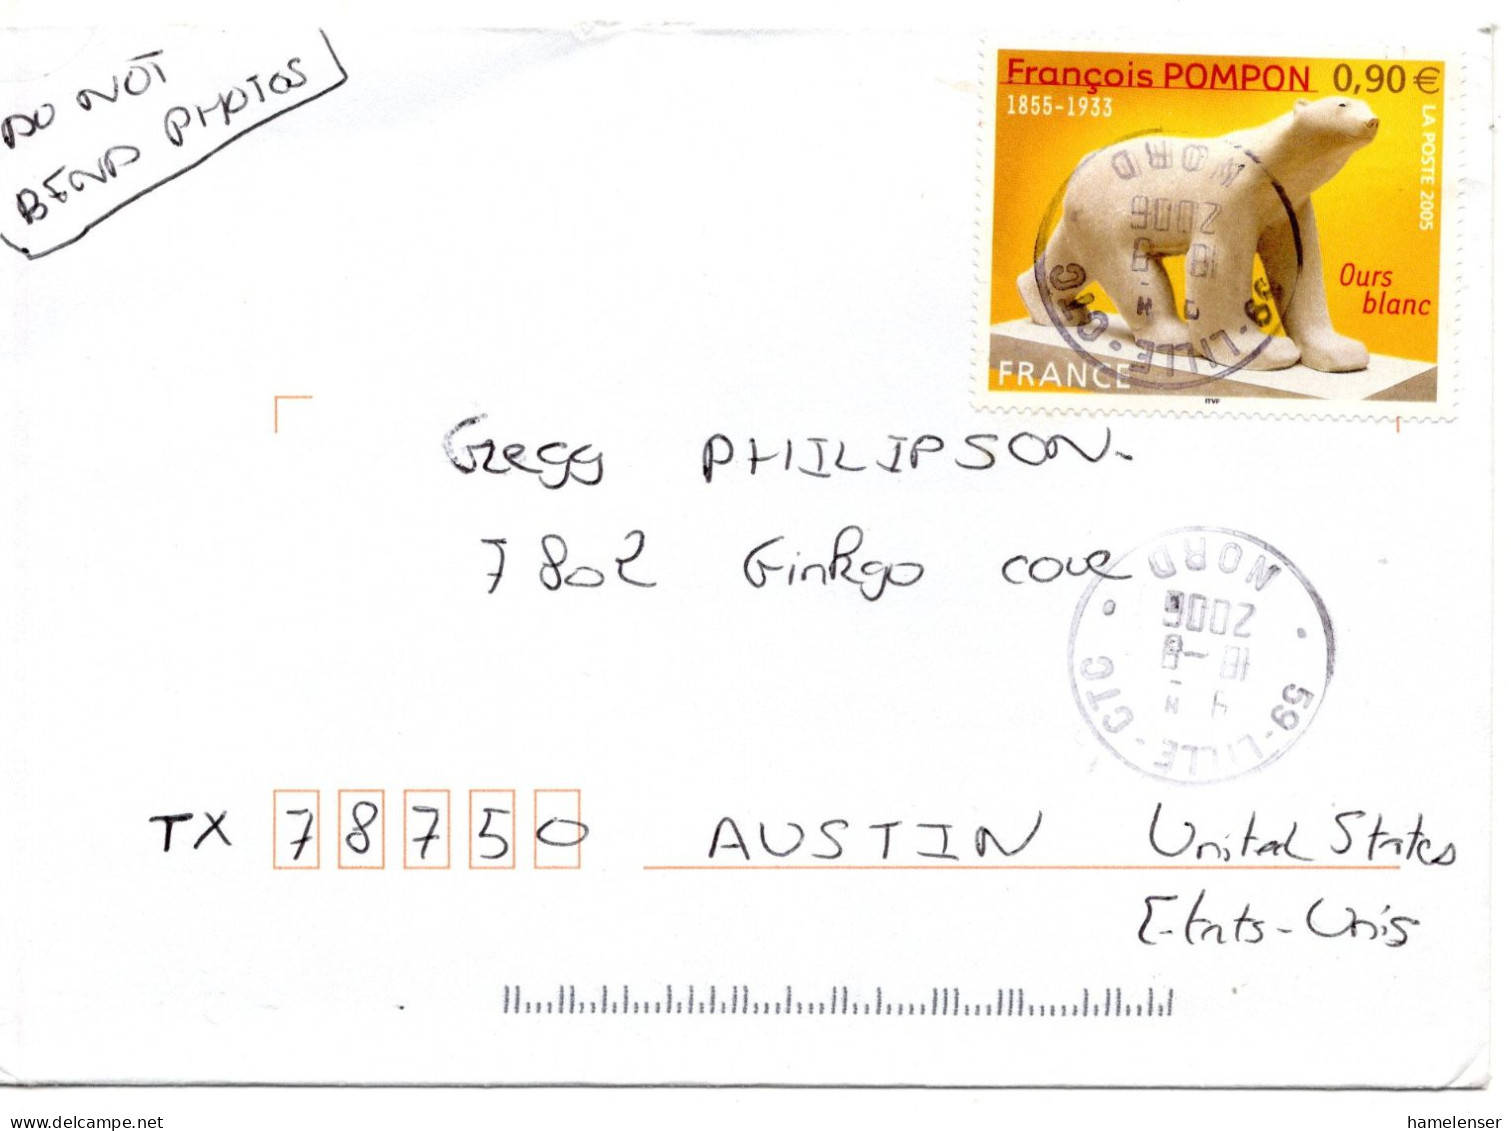 DO NOT
BEND PHOTOS
François POMPON 0,90 €
1855-1933
LA POSTE 2005
Ours
blanc
FRANCE
ITVF
59-LILLE-CTC
NORD
2006
Gregg PHILIPSON.
7802 Ginkgo cove
59-LILLE-CTC
NORD
2006
TX 78750 AUSTIN United States
Etats-Unis
www.delcampe.net
hamelenser